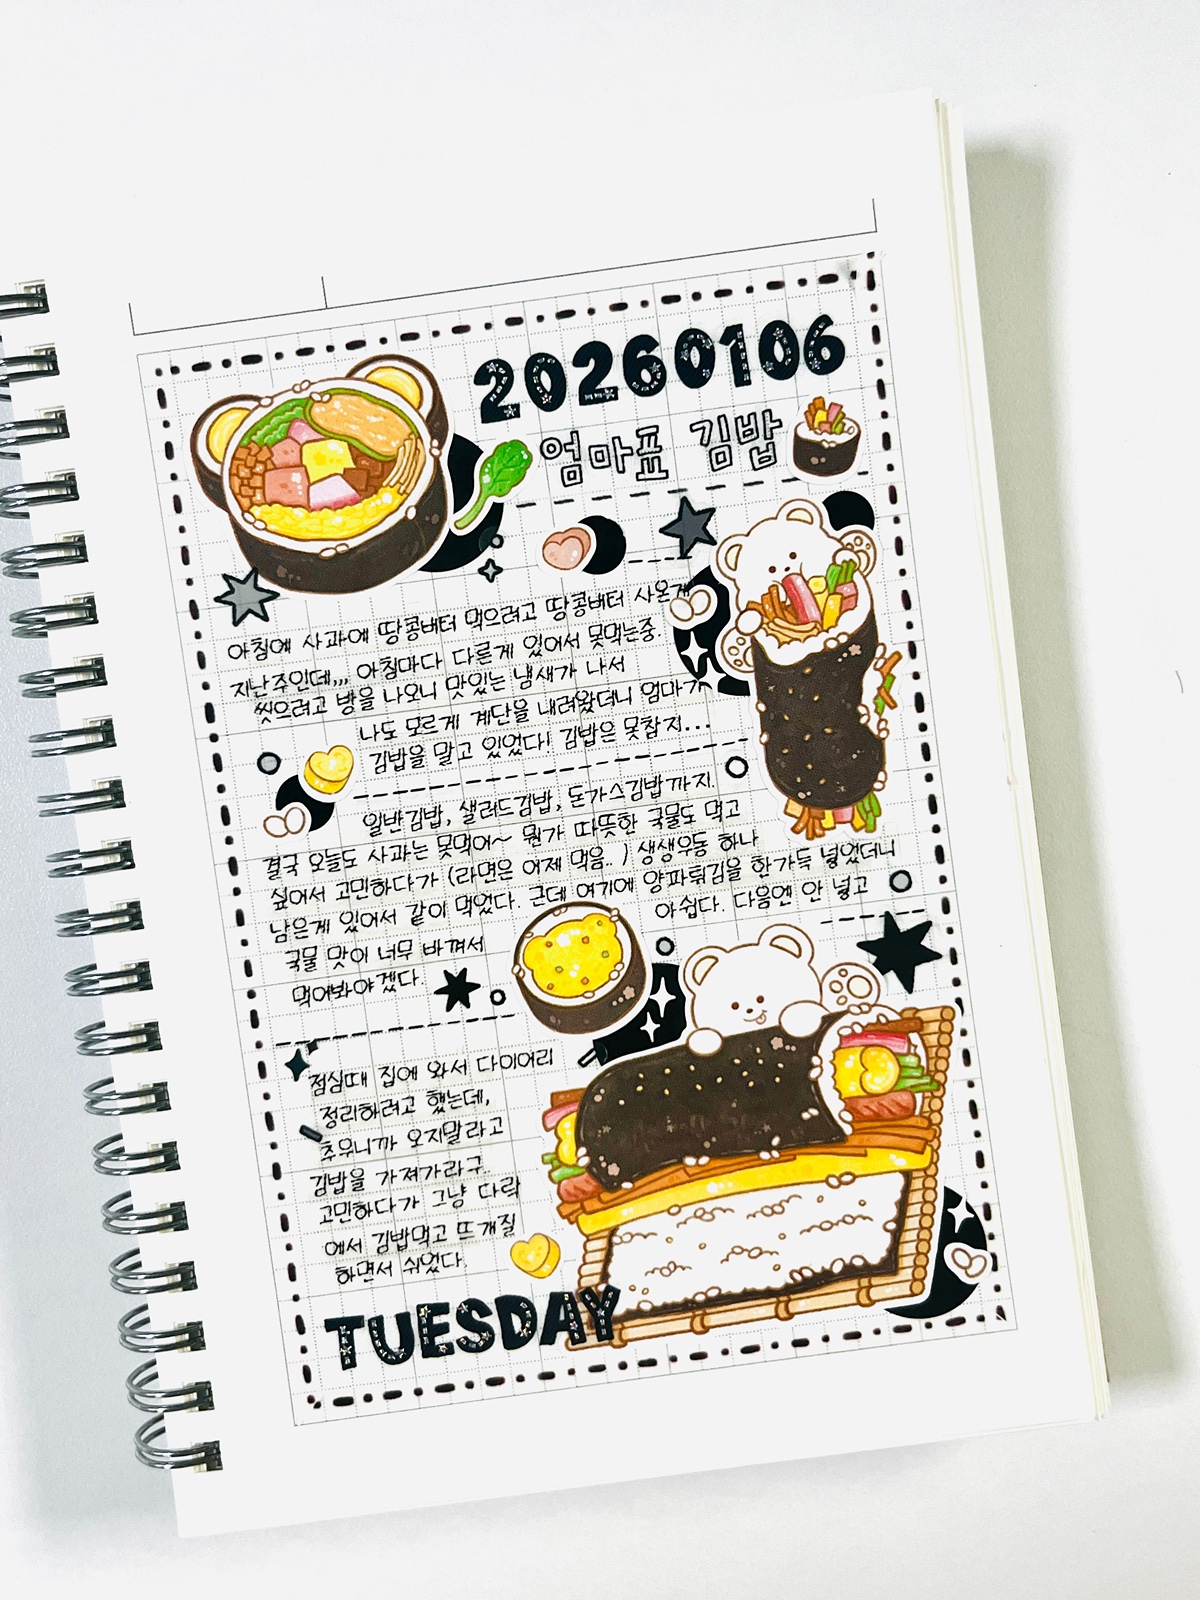 20260106
엄마표 김밥
아침에 사과에 땅콩버터 먹으려고 땅콩버터 사온게
지난주인데,,, 아침마다 다른게 있어서 못먹는중.
씻으려고 방을 나오니 맛있는 냄새가 나서
나도 모르게 계단을 내려왔더니 엄마가
김밥을 말고 있었다! 김밥은 못참지...
일반김밥, 샐러드김밥, 돈가스김밥까지.
결국 오늘도 사과는 못먹어~ 뭔가 따뜻한 국물도 먹고
싶어서 고민하다가 (라면은 어제 먹음..) 생생우동 하나
남은게 있어서 같이 먹었다. 근데 여기에 양파튀김을 한가득 넣었더니
국물 맛이 너무 바껴서 아쉽다. 다음엔 안 넣고
먹어봐야겠다.
점심때 집에 와서 다이어리
정리하려고 했는데,
추우니까 오지말라고
김밥을 가져가라구..
고민하다가 그냥 다락
에서 김밥먹고 뜨개질
하면서 쉬었다.
TUESDAY